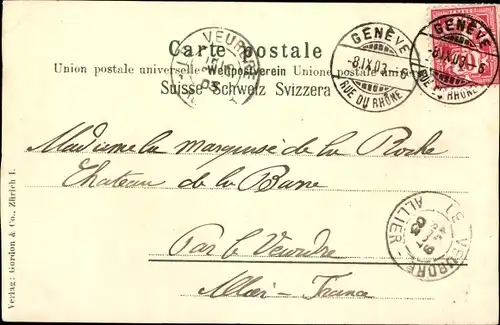 Carte postale
Union postale universelle - Weltpostverein Unione postale
Suisse Schweiz Svizzera
GENÈVE
-8.IX.03.-6
RUE DU RHÔNE
GENÈVE
-8.IX.03.-6
RUE DU RHÔNE
VEURDRE
03
Madame la marquise de la Roche
Chateau de la Barre
Par le Veurdre
Allier - France
VEURDRE
ALLIER
03
Verlag: Gordon & Co., Zürich I.